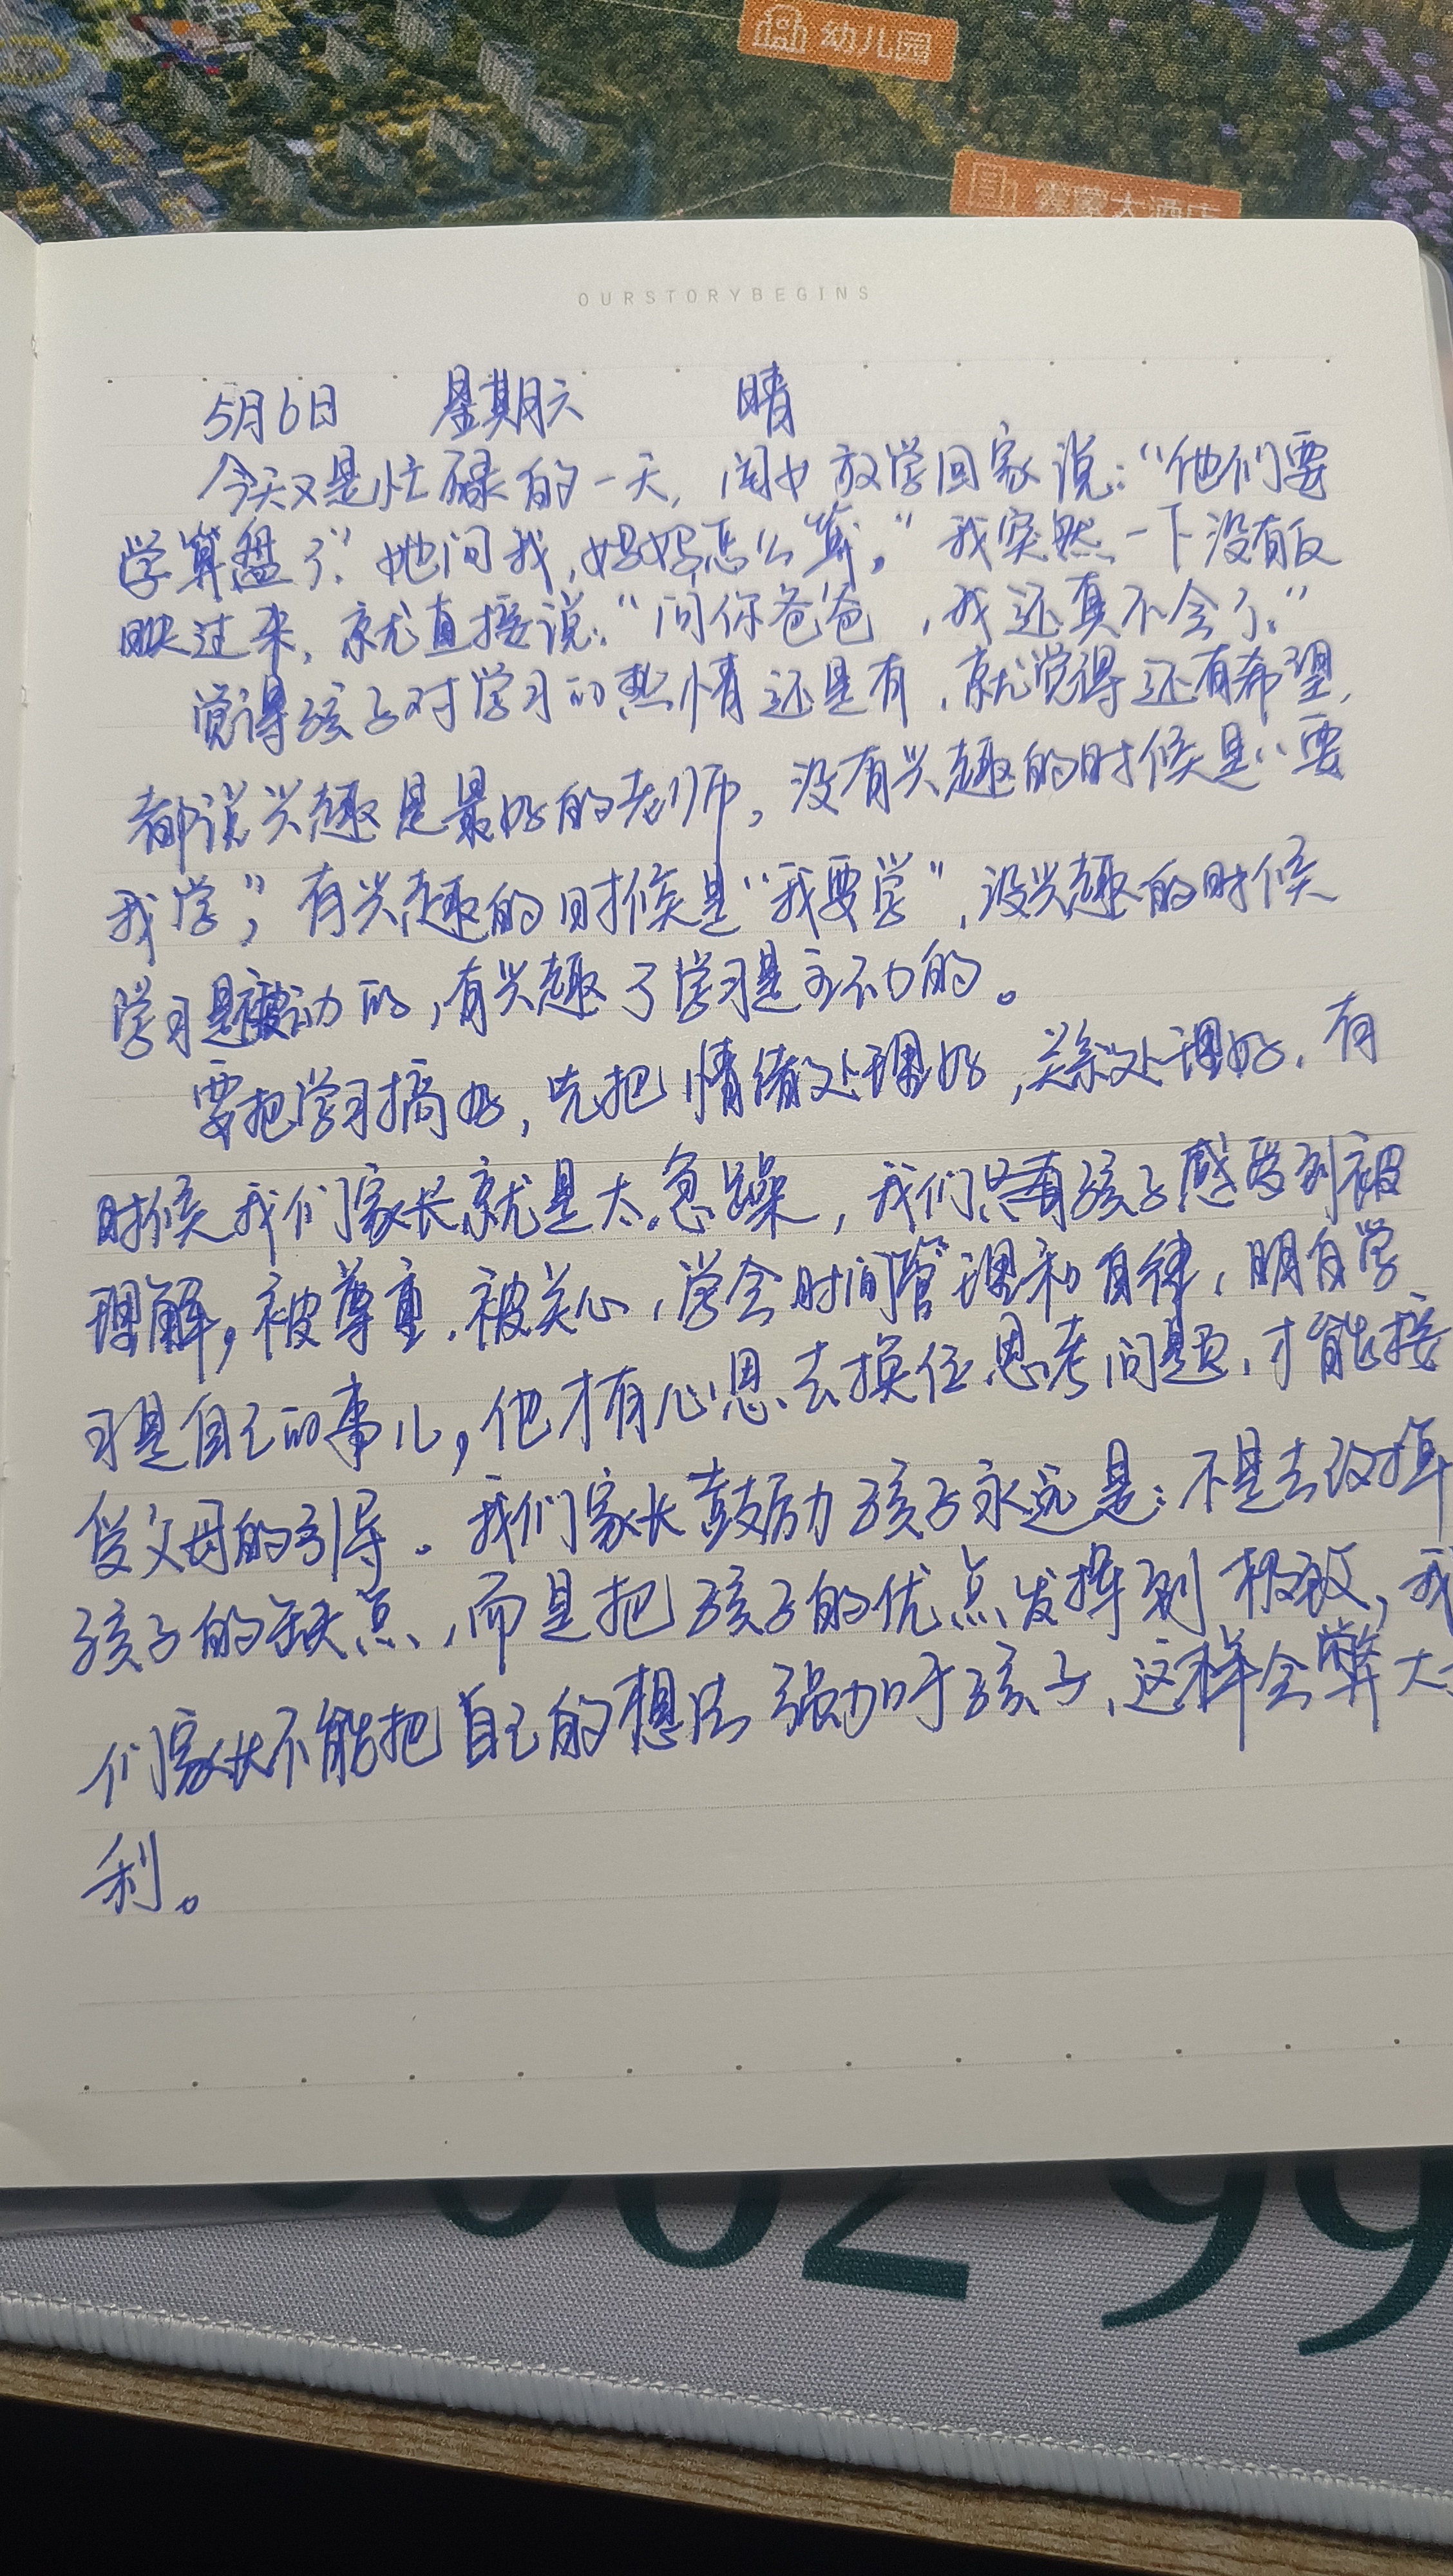 幼儿园
大酒店
OURSTORYBEGINS
5月6日 星期六 晴
今天又是忙碌的一天,放学回家说:“他们要
学算盘了”她问我,妈妈怎么算。”我突然一下没有反
映过来,就直接说:“问你爸爸,我还真不会了。”
觉得孩子对学习的热情还是有,就觉得还有希望,
都说兴趣是最好的老师,没有兴趣的时候是“要
我学”,有兴趣的时候是“我要学”,没兴趣的时候
学习是被动的,有兴趣了学习是主动的。
要把学习搞好,先把情绪处理好,关系处理好,有
时候我们家长就是太急躁,我们只有孩子感受到被
理解,被尊重,被关心,学会时间管理和自律,明白学
习是自己的事儿,他才有心思去换位思考问题,才能接
受父母的引导。我们家长鼓励孩子永远是:不是去改掉
孩子的缺点,而是把孩子的优点发挥到极致,我
们家长不能把自己的想法强加于孩子,这样会弊大于
利。
00299